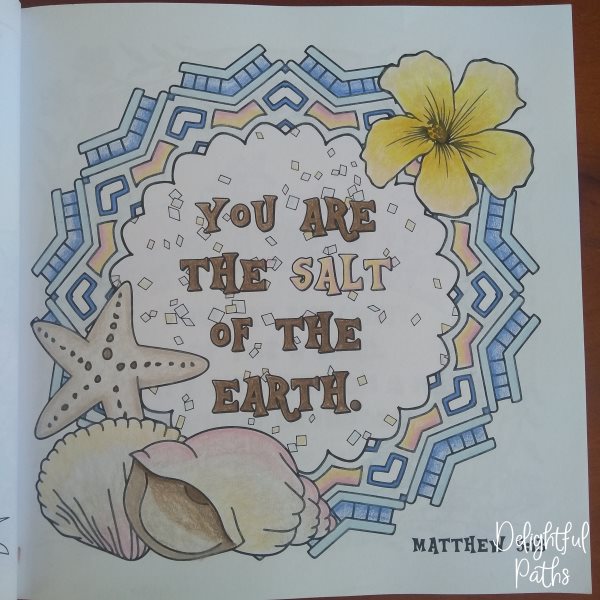 YOU ARE
THE SALT
OF THE
EARTH.
MATTHEW
Delightful
Paths